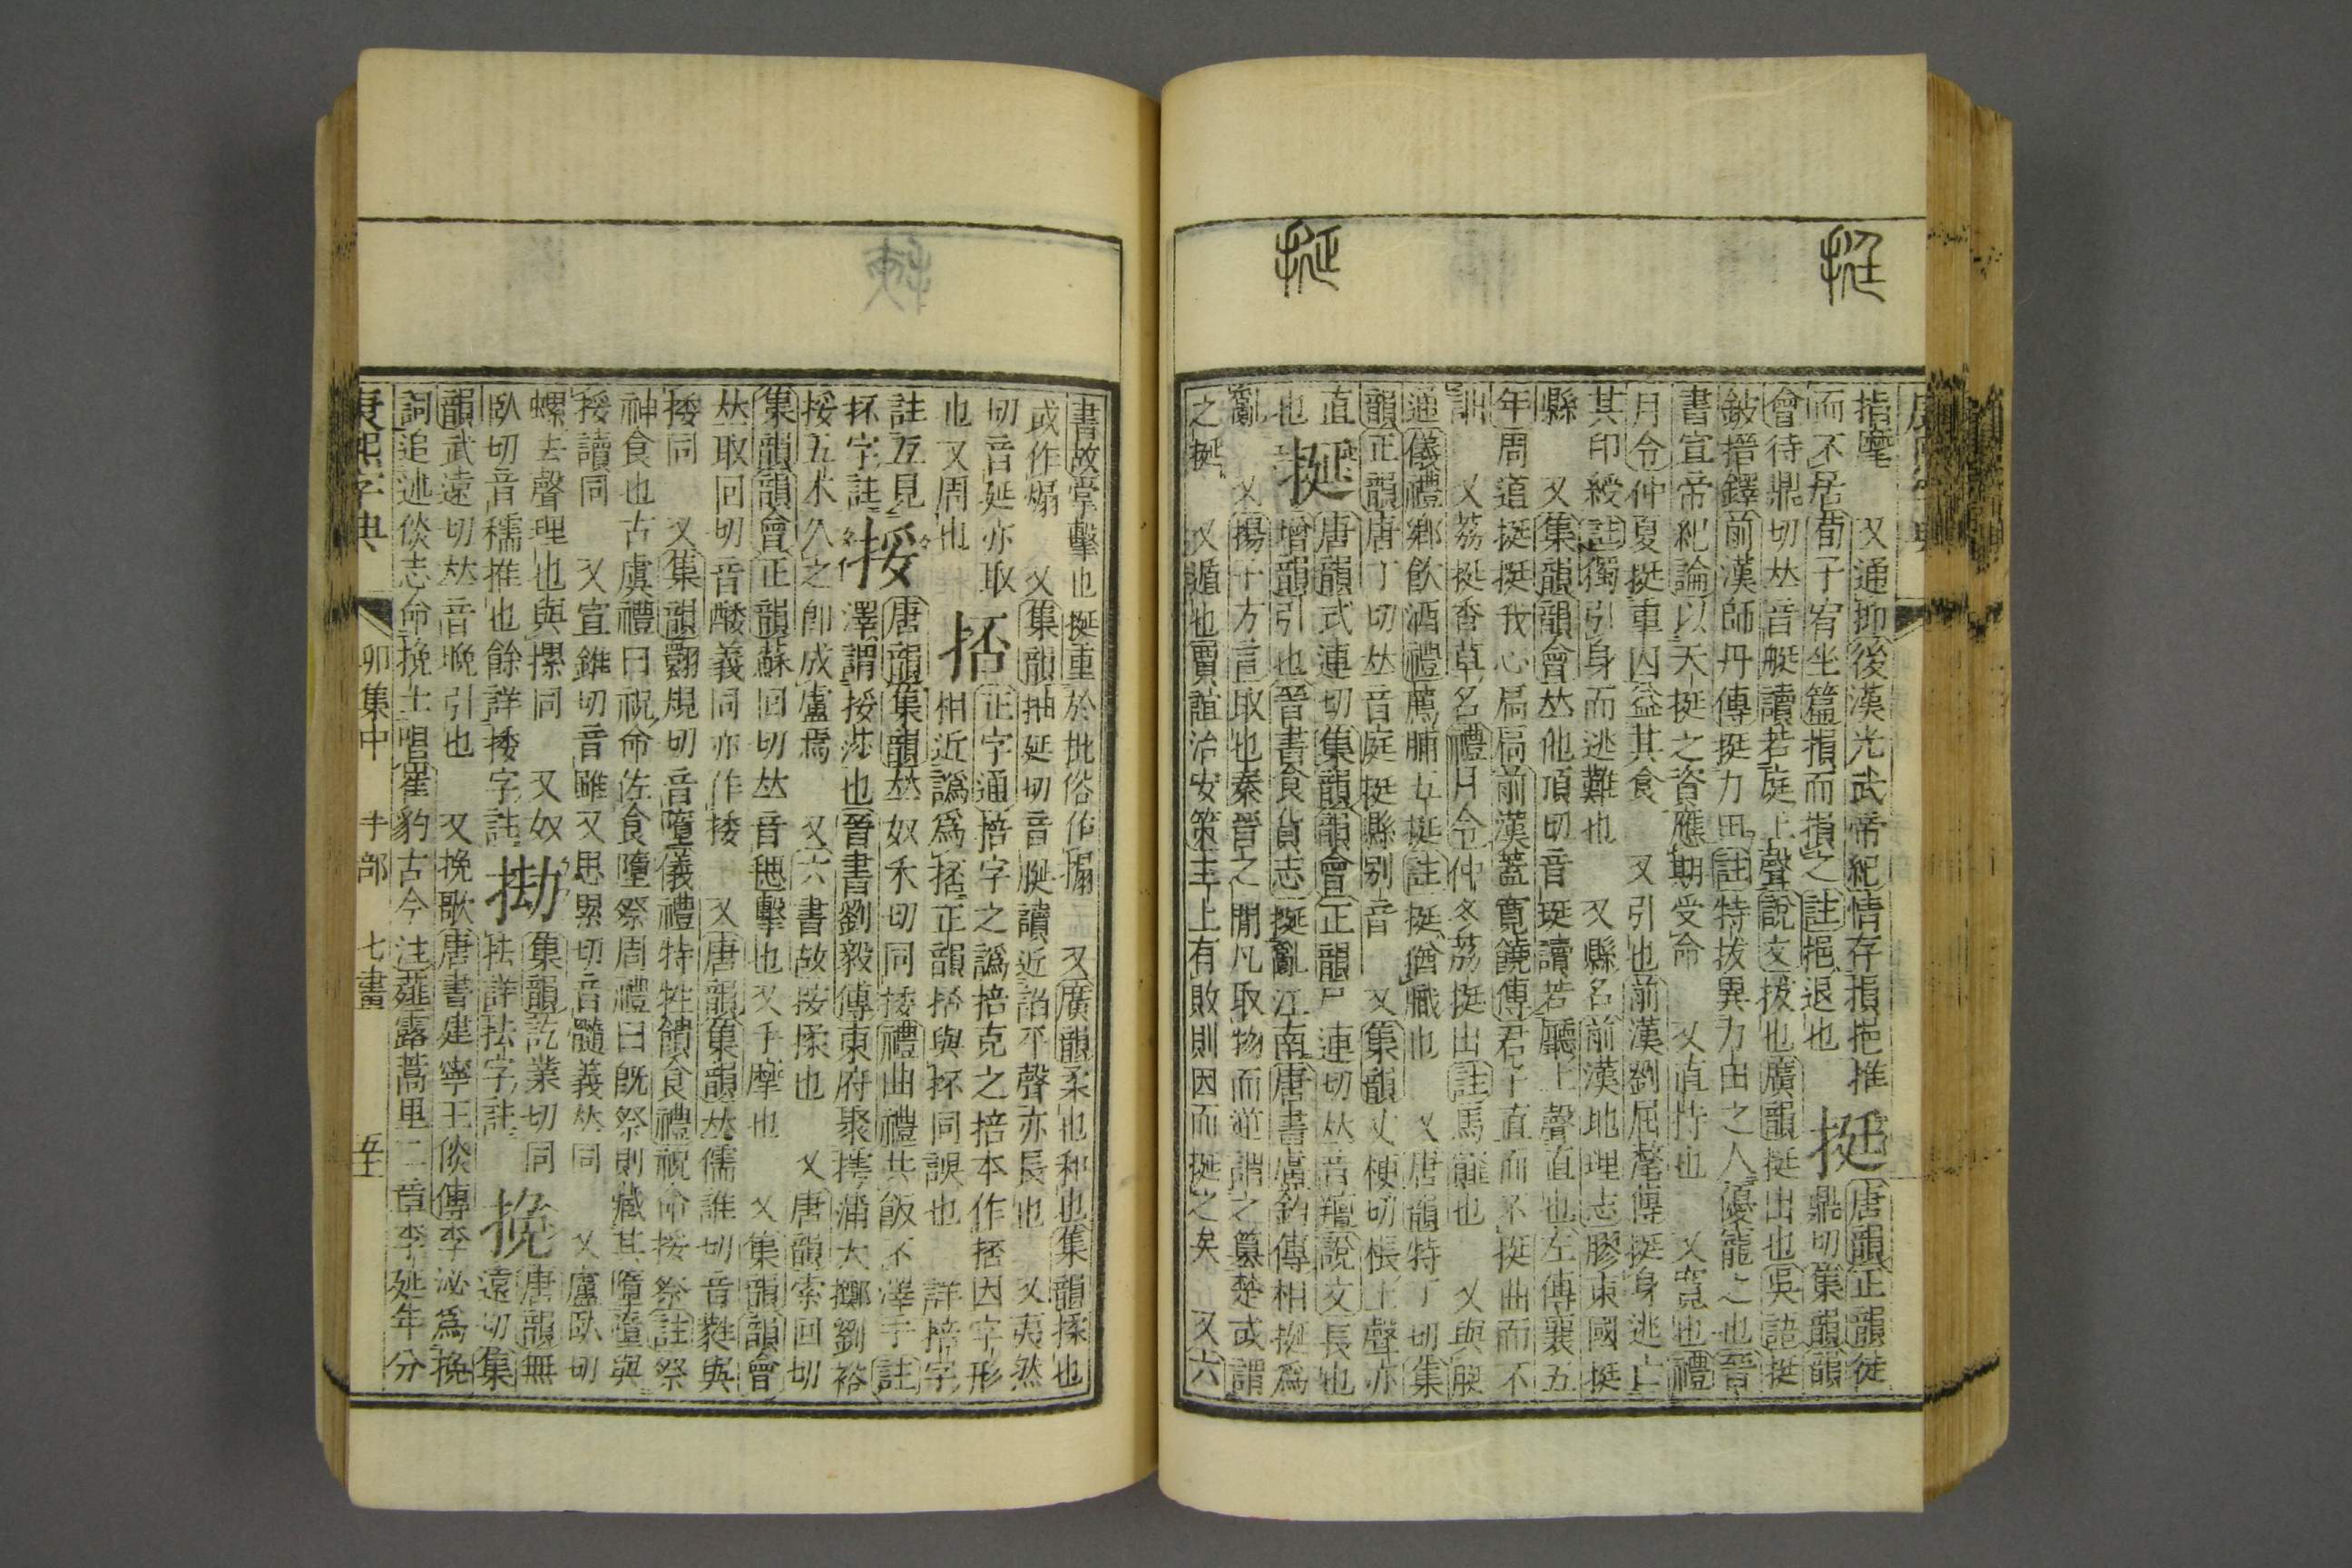 挺
挻
康熙字典
指麾　又通抑後漢光武帝紀情存損挹推 挺 唐韻正韻徒
而不居荀子宥坐篇揖而損之註挹退也 鼎切集韻韻
會待鼎切𠀤音艇讀若庭上聲說文拔也廣韻挺出也吳語挺
鈹搢鐸前漢師丹傳挺力田註特拔異力田之人優寵之也晉
書宣帝紀論以天挺之資應期受命　又直持也　又寬也禮
月令仲夏挺重囚益其食　又引也前漢劉屈氂傳挺身逃亡
其印綬註獨引身而逃難也　又縣名前漢地理志膠東國挺
縣　又集韻韻會𠀤他頂切音珽讀若聽上聲直也左傳襄五
年周道挺挺我心扃扃前漢蓋寬饒傳君子直而不挺曲而不
詘　又荔挺香草名禮月令仲冬荔挺出註馬䪥也　又與脡
通儀禮鄉飮酒禮薦脯五挺註挺猶膱也　又唐韻特丁切集
韻正韻唐丁切𠀤音庭挺縣別音　又集韻丈梗切棖上聲亦
直 挻 唐韻式連切集韻韻會正韻尸連切𠀤音羶說文長也
也 增韻引也晉書食貨志挻亂江南唐書盧鈞傳相挻爲
亂　又揚子方言取也秦晉之閒凡取物而逆謂之篡楚或謂
之挻　又遁也賈誼治安策主上有敗則因而挻之矣　又六
書故掌擊也挻重於批俗作搧　又廣韻柔也和也集韻揉也
或作煽　又集韻抽延切音脠讀近諂平聲亦長也　又夷然
切音延亦取 㧵 正字通掊字之譌掊克之掊本作㧵因字形
也又周也 相近譌爲㧵正韻㧵與抔同誤也　詳掊字
註互見 挼 唐韻集韻𠀤奴禾切同捼禮曲禮共飯不澤手註
抔字註 澤謂挼莎也晉書劉毅傳東府聚摴蒱大擲劉裕
挼五木久之卽成盧焉　又六書故挼揉也　又唐韻素回切
集韻韻會正韻蘇回切𠀤音毸擊也又手摩也　又集韻韻會
𠀤取回切音義同亦作捼　又唐韻集韻𠀤儒誰切音蕤與
捼同　又集韻翾規切音隳儀禮特牲饋食禮祝命挼祭註祭
神食也古虞禮曰祝命佐食墮祭周禮曰旣祭則藏其墮墮與
挼讀同　又宣錐切音雖又思累切音髓義𠀤同　又盧臥切
螺去聲理也與摞同　又奴 集韻訖業切同 挽 唐韻無
臥切音稬推也餘詳捼字註 抾詳抾字註 遠切集
韻武遠切𠀤音晚引也　又挽歌唐書建寧王倓傳李泌爲挽
詞追述倓志命挽士唱崔豹古今注薤露蒿里二章李延年分
康熙字典　卯集中　手部　七畫　五十